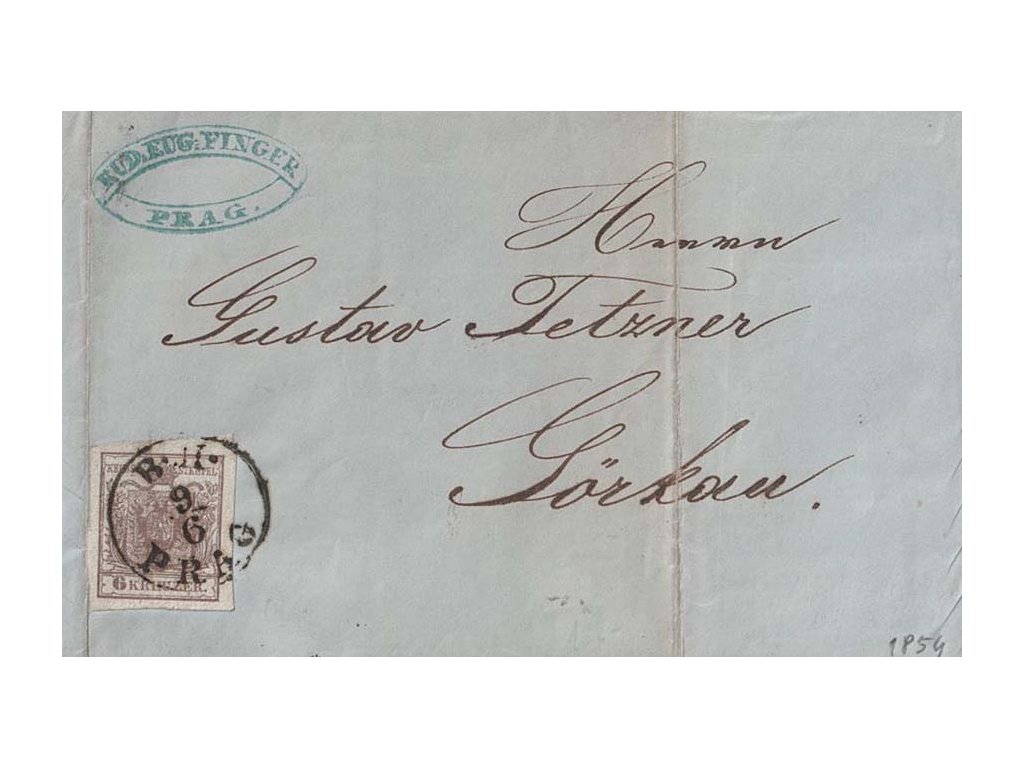 RUD. EUG. FINGER
PRAG.
Herrn
Gustav Tetzner
Görkau.
B. H.
9/6
PRAG
6 KREUZER.
1854